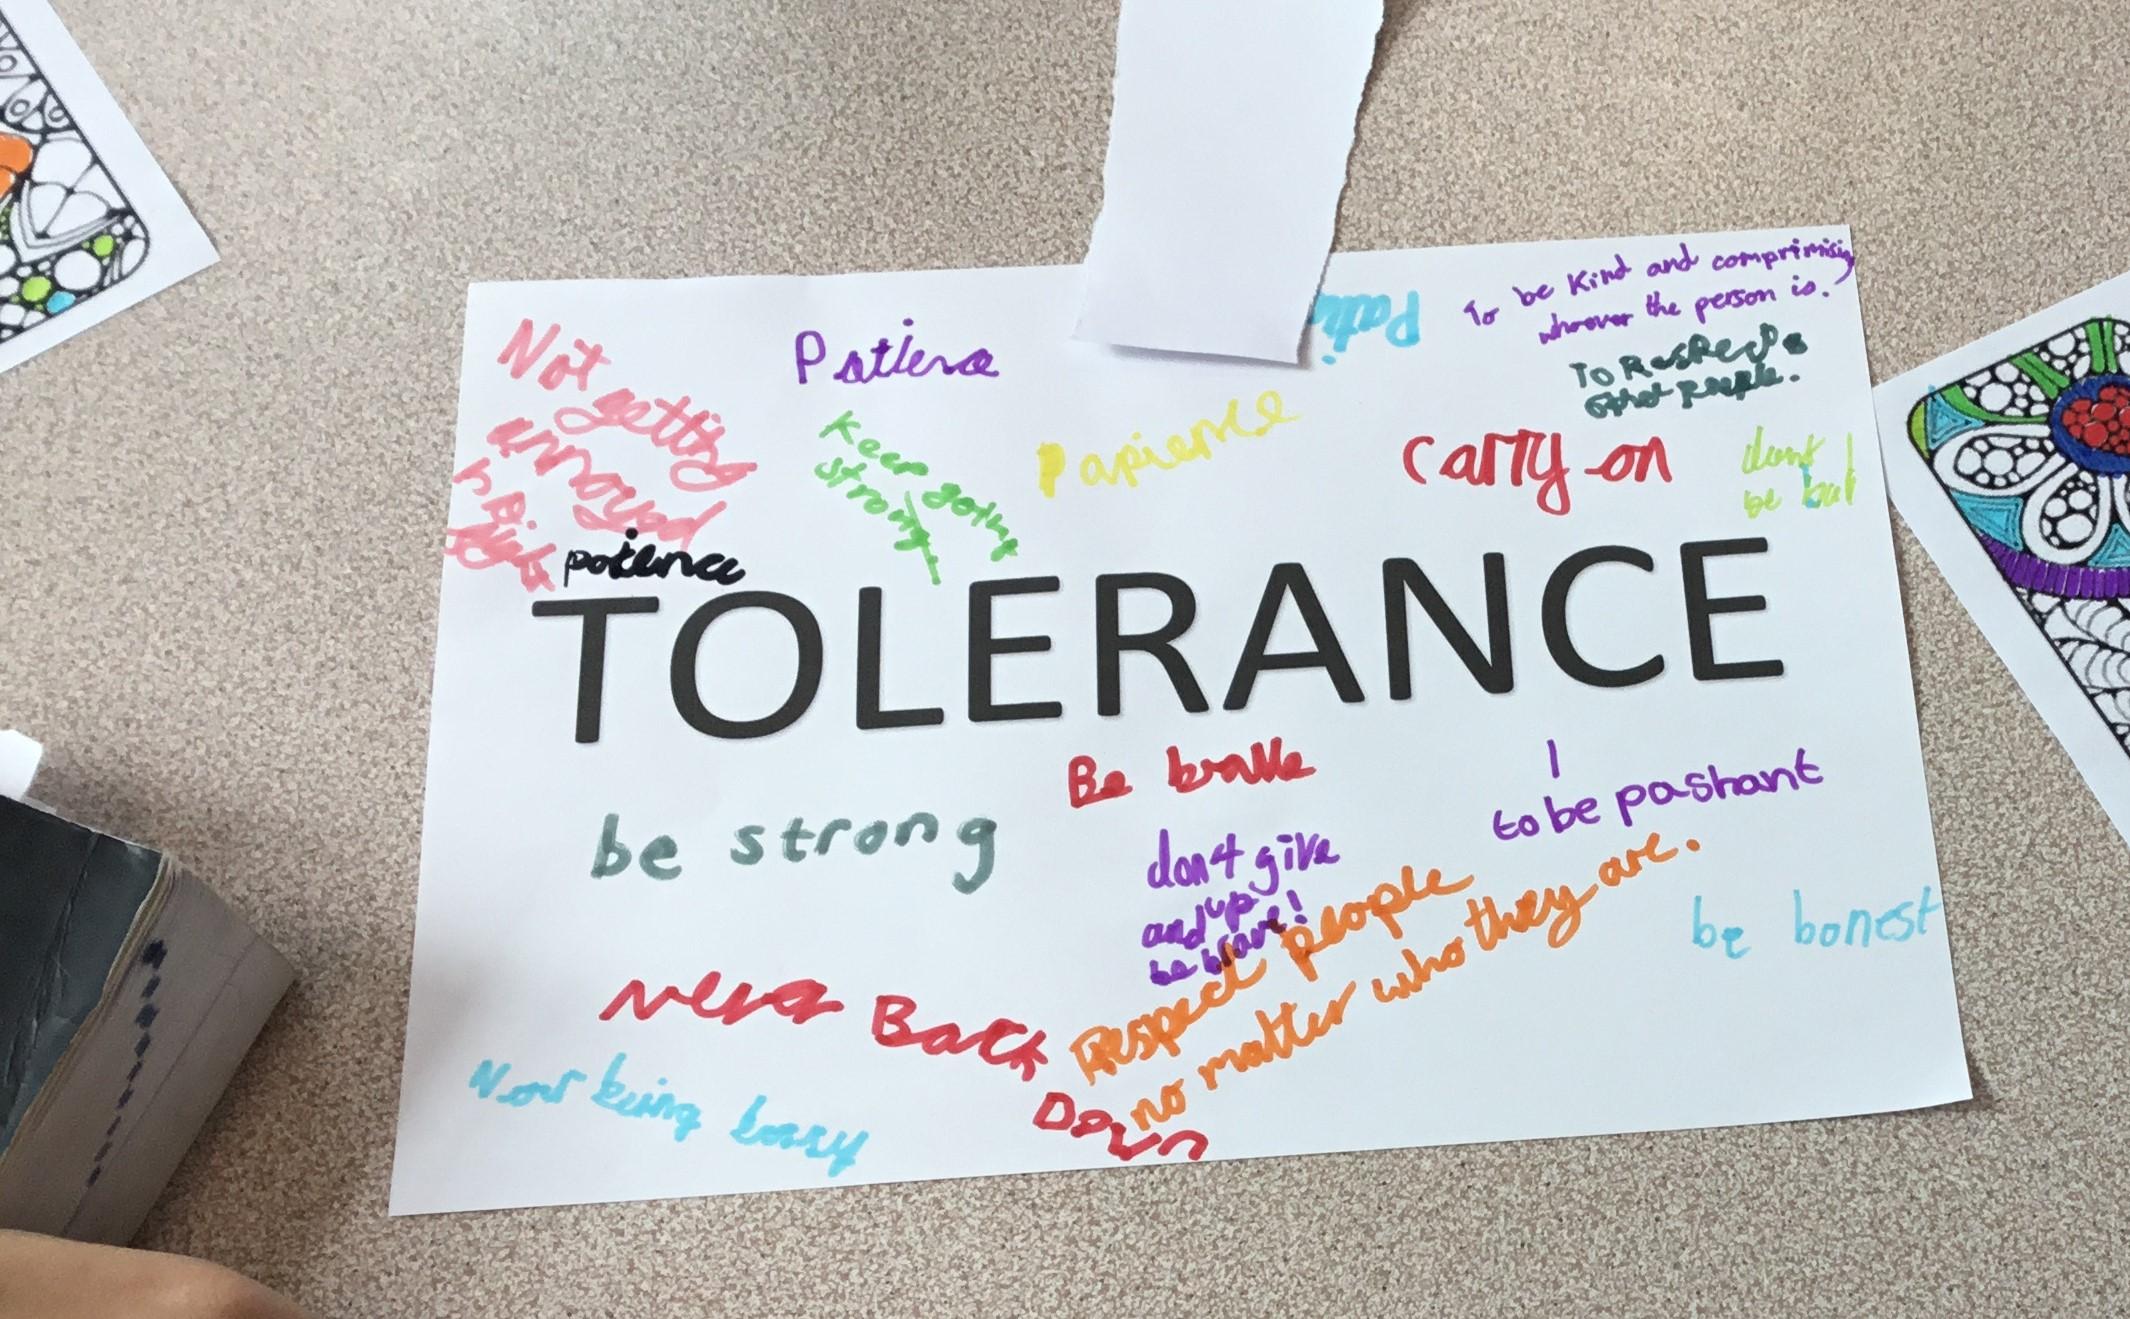 Not
getting
annoyed
Patiena
Pati
To be Kind and comprimising
whoever the person is.
To Respect
other people.
Keep going
strong
Papience
Carry on
dont
be
potience
TOLERANCE
Be brave
I
to be pashant
be strong
don4 give
up
and
be brave!
Respect people
no matter who they are.
be bonest
never Back
Down
being